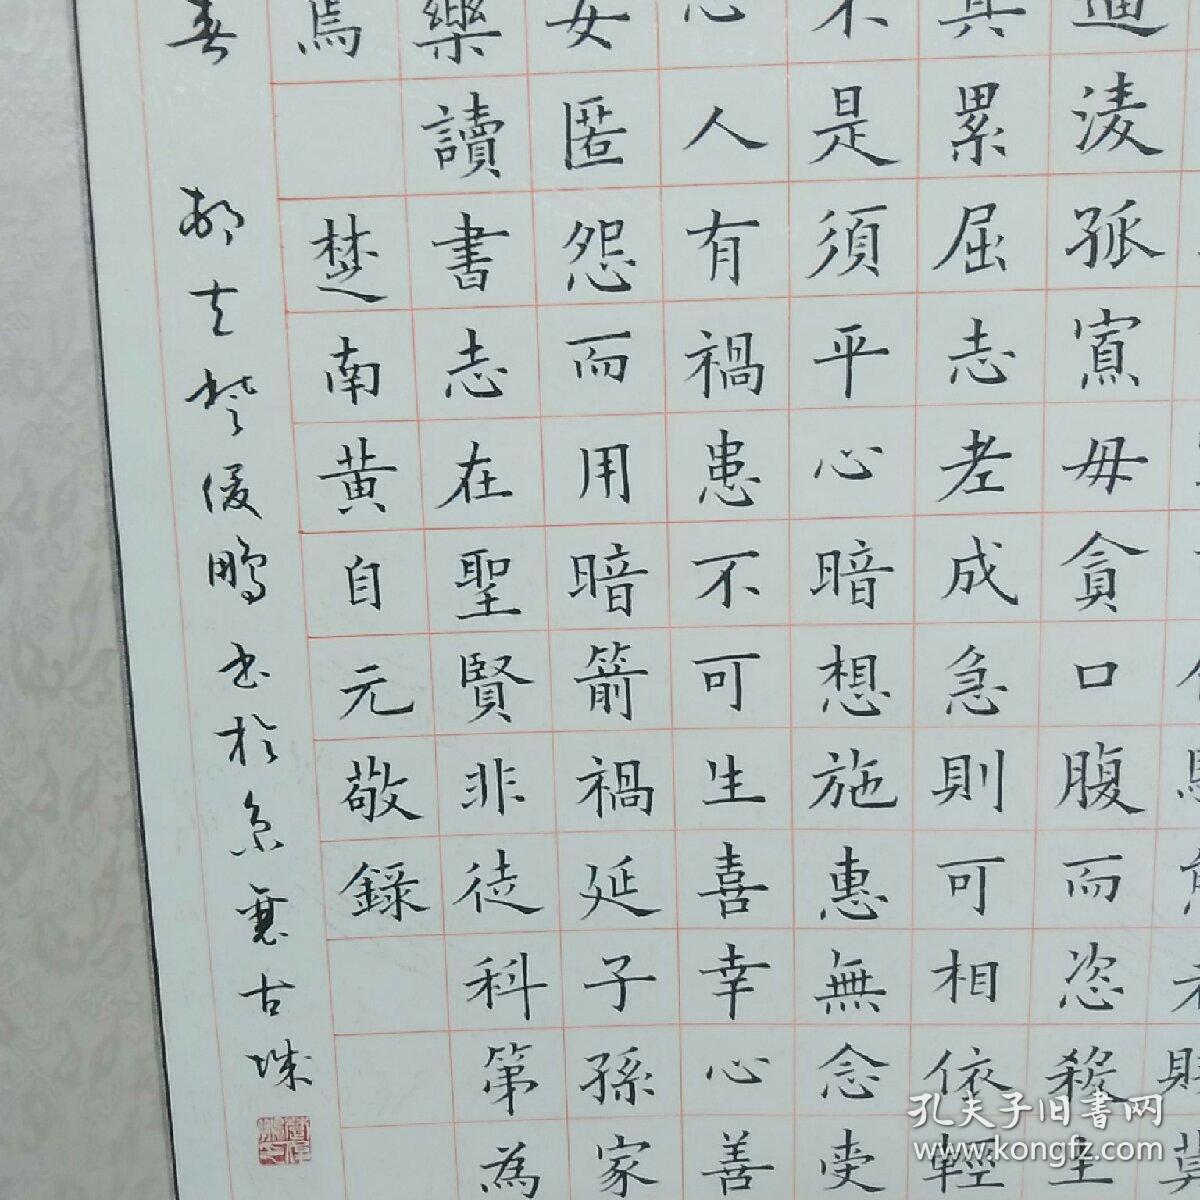 逼凌孤寡毋貪口腹而恣殺生
真累屈志老成急則可相依輕
不是須平心暗想施惠無念受
心人有禍患不可生喜幸心善
女匿怨而用暗箭禍延子孫家
樂讀書志在聖賢非徒科第為
焉
楚南黄自元敬錄
春
楚俊鵬書於京襄古城
孔夫子旧书网
www.kongfz.com